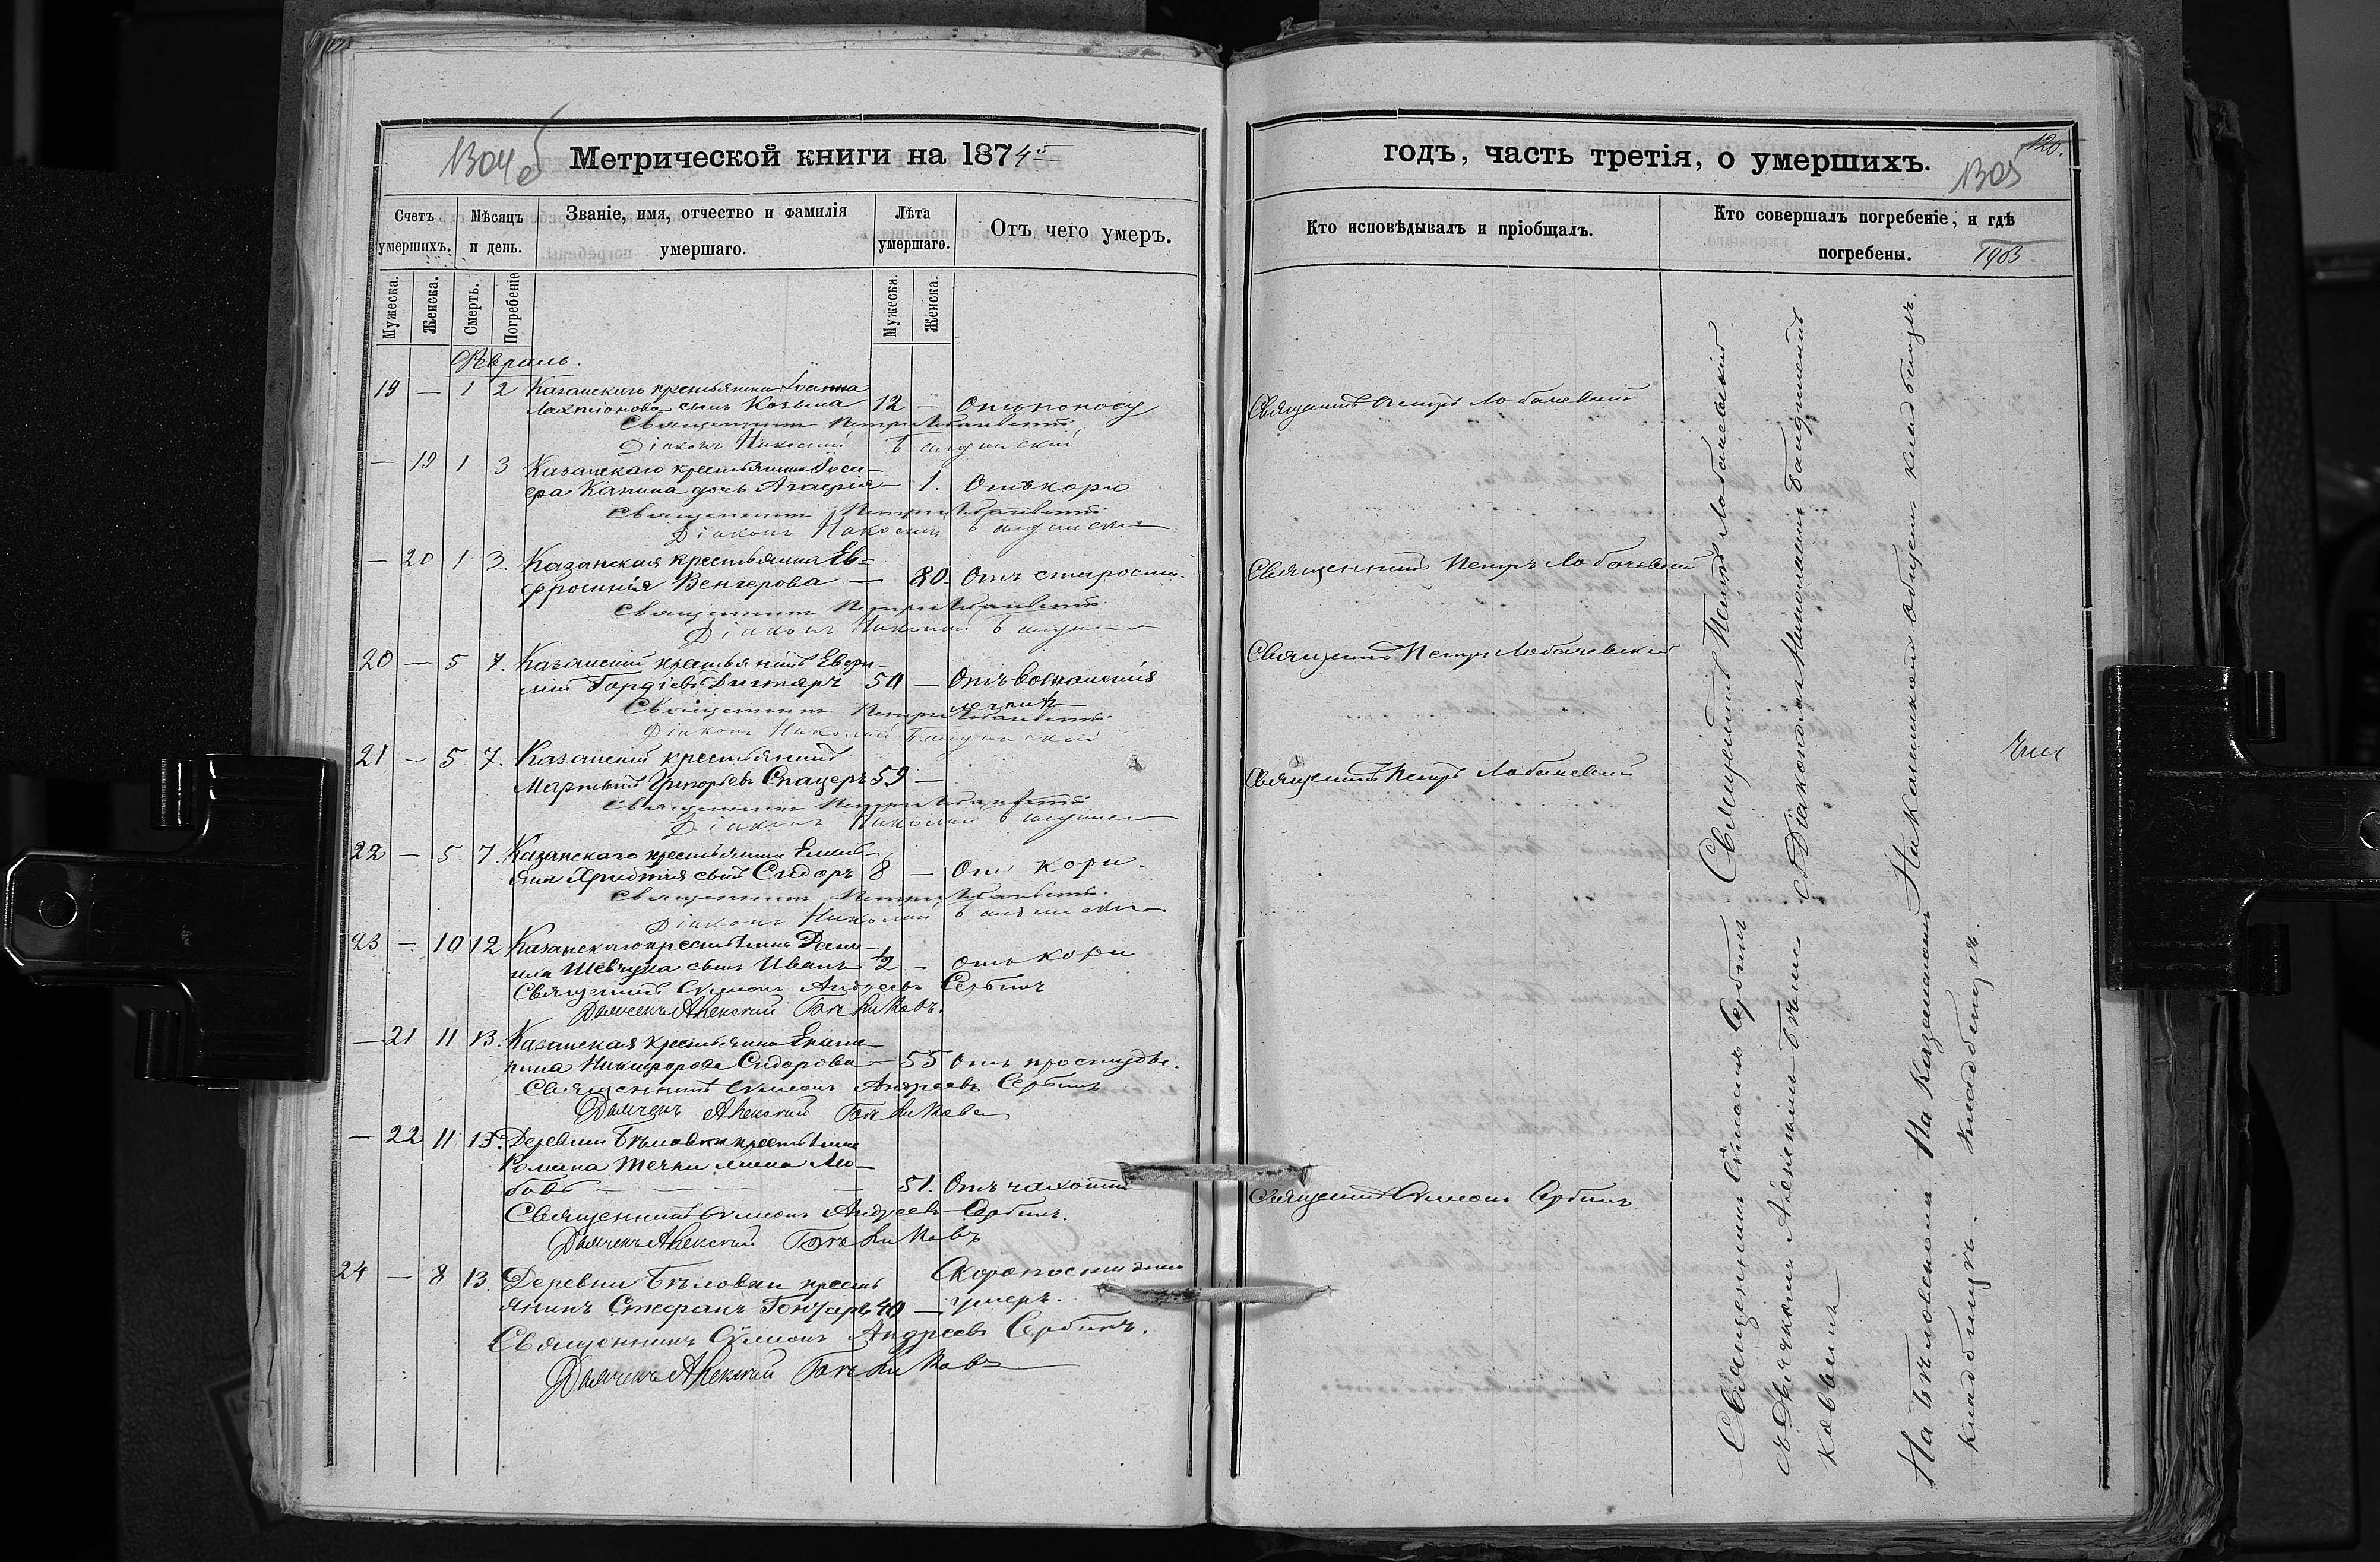 1304 об
Метрической книги на 1874й
Счетъ умершихъ.
Мѣсяцъ и день.
Званіе, имя, отчество и фамилія умершаго.
Лѣта умершаго.
Отъ чего умеръ.
Мужеска.
Женска.
Смерть.
Погребеніе
Мужеска.
Женска.
Февраль.
19 — 1 2 Казанскаго крестьянина Іоанна
сынъ Козьма 12 — Отъ поносу
Священникъ Петръ Лобачевскій
Діаконъ Николай
— 19 1 3 Казанскаго крестьянина Іоси-
фа Капина дочь Агафія — 1. Отъ кори
Священникъ Петръ Лобачевскій
Діаконъ Николай
— 20 1 3. Казанская крестьянка Ев-
фросинія Венгерова — 80. Отъ старости.
Священникъ Петръ Лобачевскій
Діаконъ Николай
20 — 5 7. Казанскій крестьянинъ Евфи-
мій Гордіевъ 50 — Отъ воспаленія
Священникъ Петръ Лобачевскій
Діаконъ Николай
21 — 5 7. Казанскій крестьянинъ
Григорьевъ Спацеръ 59 —
Священникъ Петръ Лобачевскій
Діаконъ Николай
22 — 5 7 Казанскаго крестьянина Емель-
яна сынъ Сидоръ 8 — Отъ кори.
Священникъ Петръ Лобачевскій
Діаконъ Николай
23 — 10 12 Казанскаго крестьянина Дани-
ила Шевчука сынъ Иванъ ½ — отъ кори
Священникъ Сѵмеонъ Андреевъ Сербинъ
Дьячекъ Алексій
— 21 11 13. Казанская крестьянка Екате-
рина Никифорова Сидорова — 55 Отъ простуды.
Священникъ Сѵмеонъ Андреевъ Сербинъ
Дьячекъ Алексій
— 22 11 13. Деревни Бѣловки крестьянина
Романа жена Лю-
бовь — 51. Отъ чахотки
Священникъ Сѵмеонъ Андреевъ Сербинъ.
Дьячекъ Алексій
24 — 8 13. Деревни Бѣловки кресть
янинъ Стефанъ Гончаръ 40 — Скоропостижно
умеръ.
Священникъ Сѵмеонъ Андреевъ Сербинъ.
Дьячекъ Алексій
годъ, часть третія, о умершихъ.
120.
1305
Кто исповѣдывалъ и пріобщалъ.
Кто совершалъ погребеніе, и гдѣ погребены.
1903
Священникъ Петръ Лобачевскій
Священникъ Петръ Лобачевскій
Священникъ Петръ Лобачевскій
Священникъ Петръ Лобачевскій
Священникъ Сѵмеонъ Сербинъ
Священникъ Сѵмеонъ Сербинъ Священникъ Петръ Лобачевскій
съ Дьячкомъ Алексіемъ съ Діакономъ Николаемъ
На Бѣловскомъ кладбищѣ. На Казанскомъ кладбищѣ. На Казанскомъ общемъ кладбищѣ.